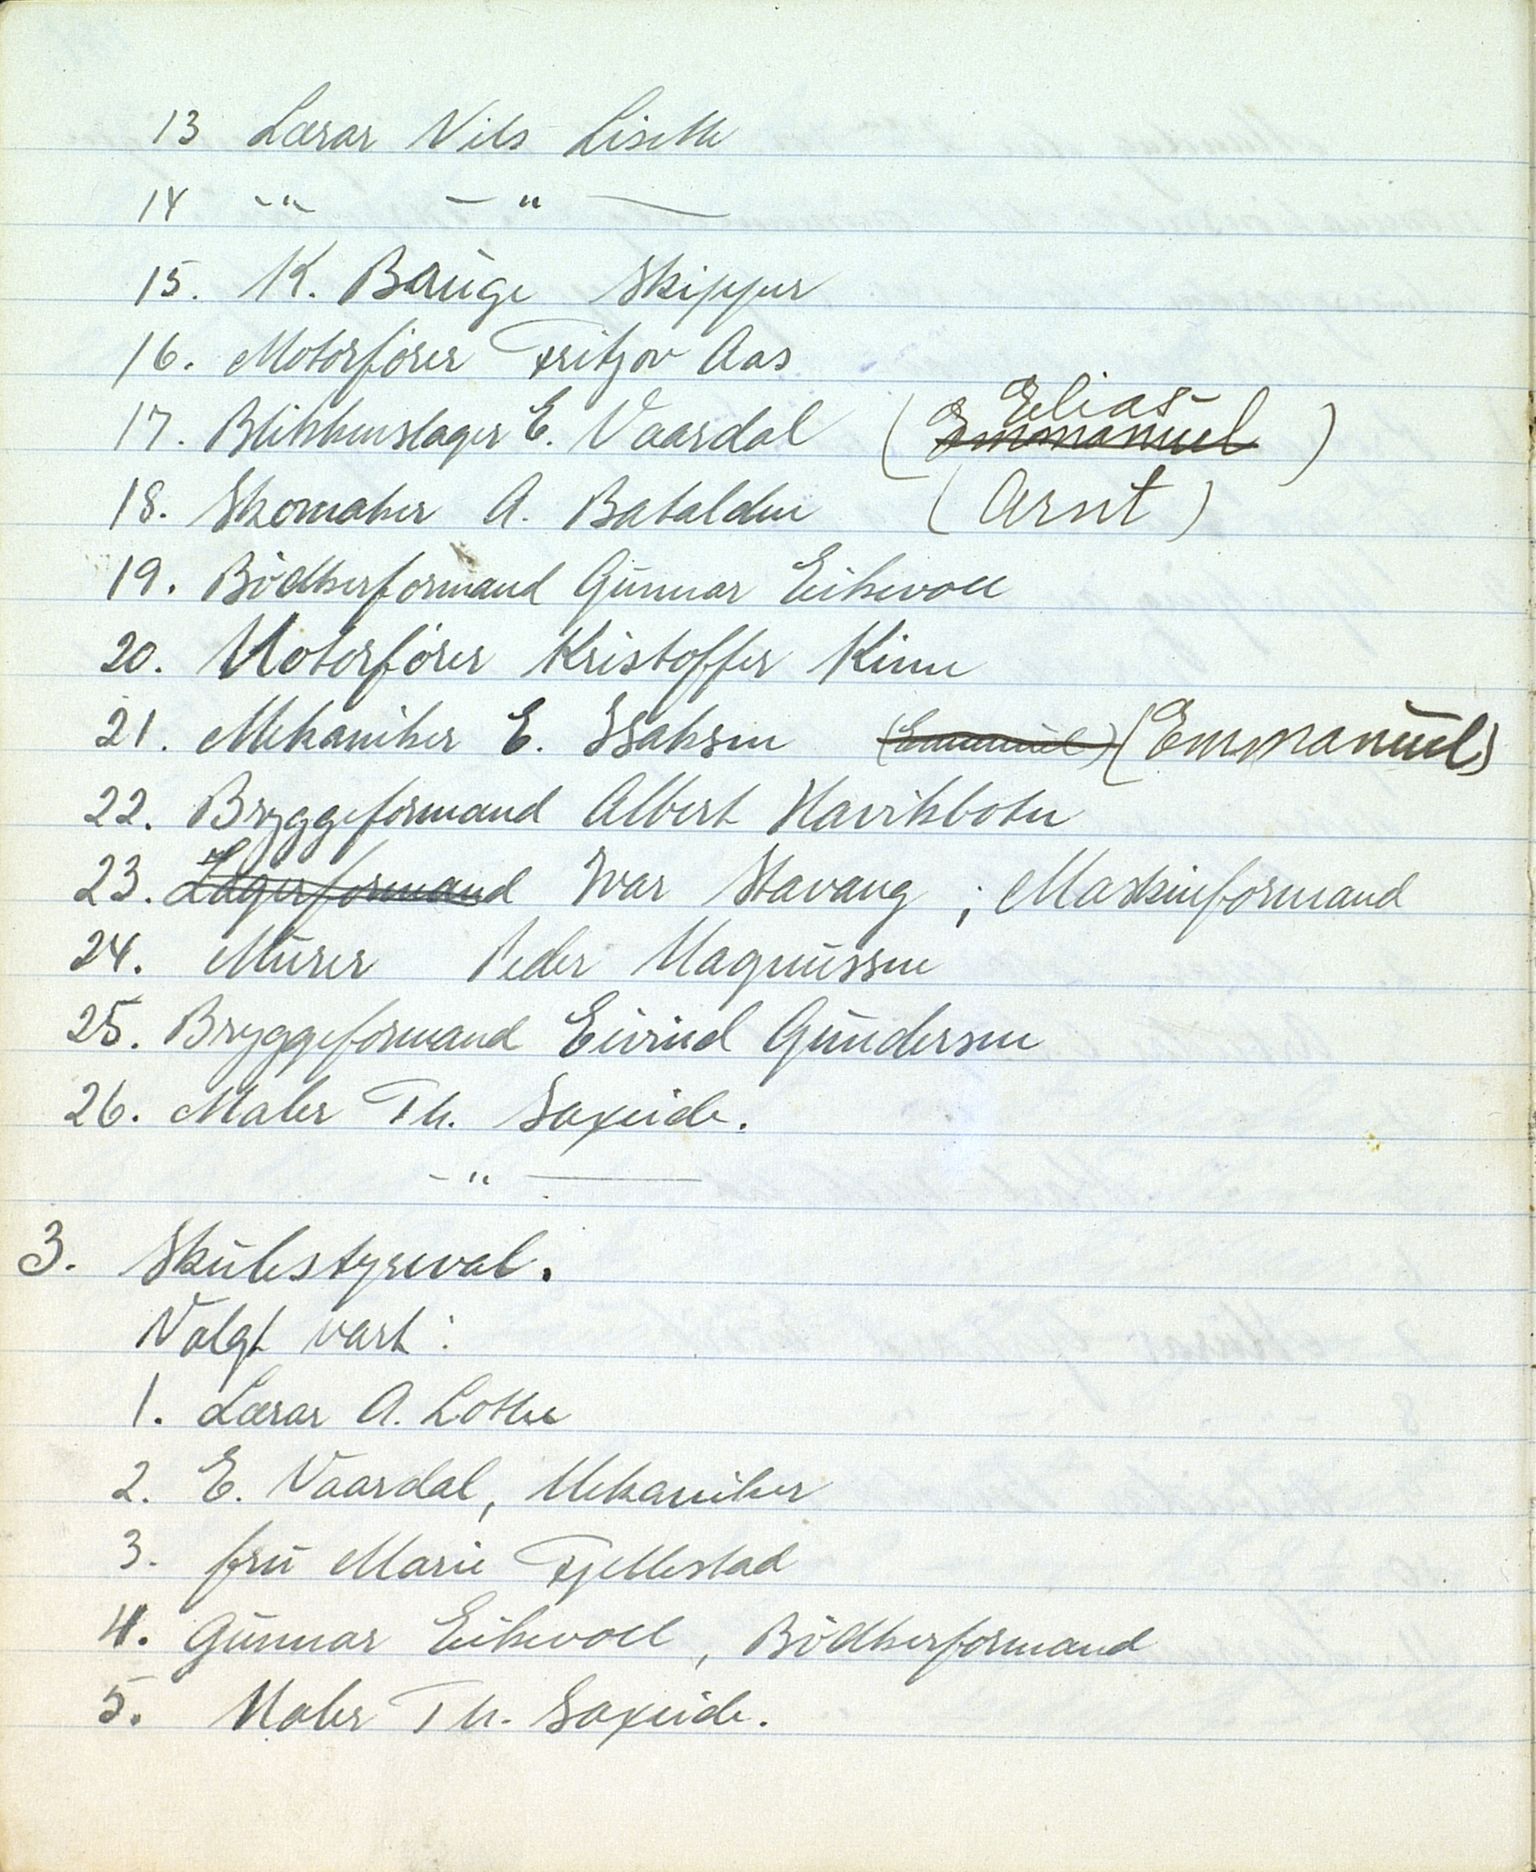 13 Lærar Nils Lisethe
14 -"- - " -
15. K. Bauge Skipper
16. Motorfører Fritjov Aas
17. Blikkenslager E. Vaardal (Emmanuel Elias)
18. Skomaker A. Batalden (Arnt)
19. Bødkerformand Gunnar Eikevoll
20. Motorfører Kristoffer Kinn
21. Mekaniker E. Isaksen (Emmanuel) (Emmanuel)
22. Bryggeformand Albert Havikboten
23. Lagerformand Ivar Stavang ; Maskinformand
24. Murer Peder Magnussen
25. Bryggeformand Eivind Gundersen
26. Maler Th. Saxeide.
- " -
3. Skulestyreval.
Valgt vart :
1. Lærar A. Lothe
2. E. Vaardal, Mekaniker
3. fru Marie Fjellestad
4. Gunnar Eikevoll, Bødkerformand
5. Maler Th. Saxeide.